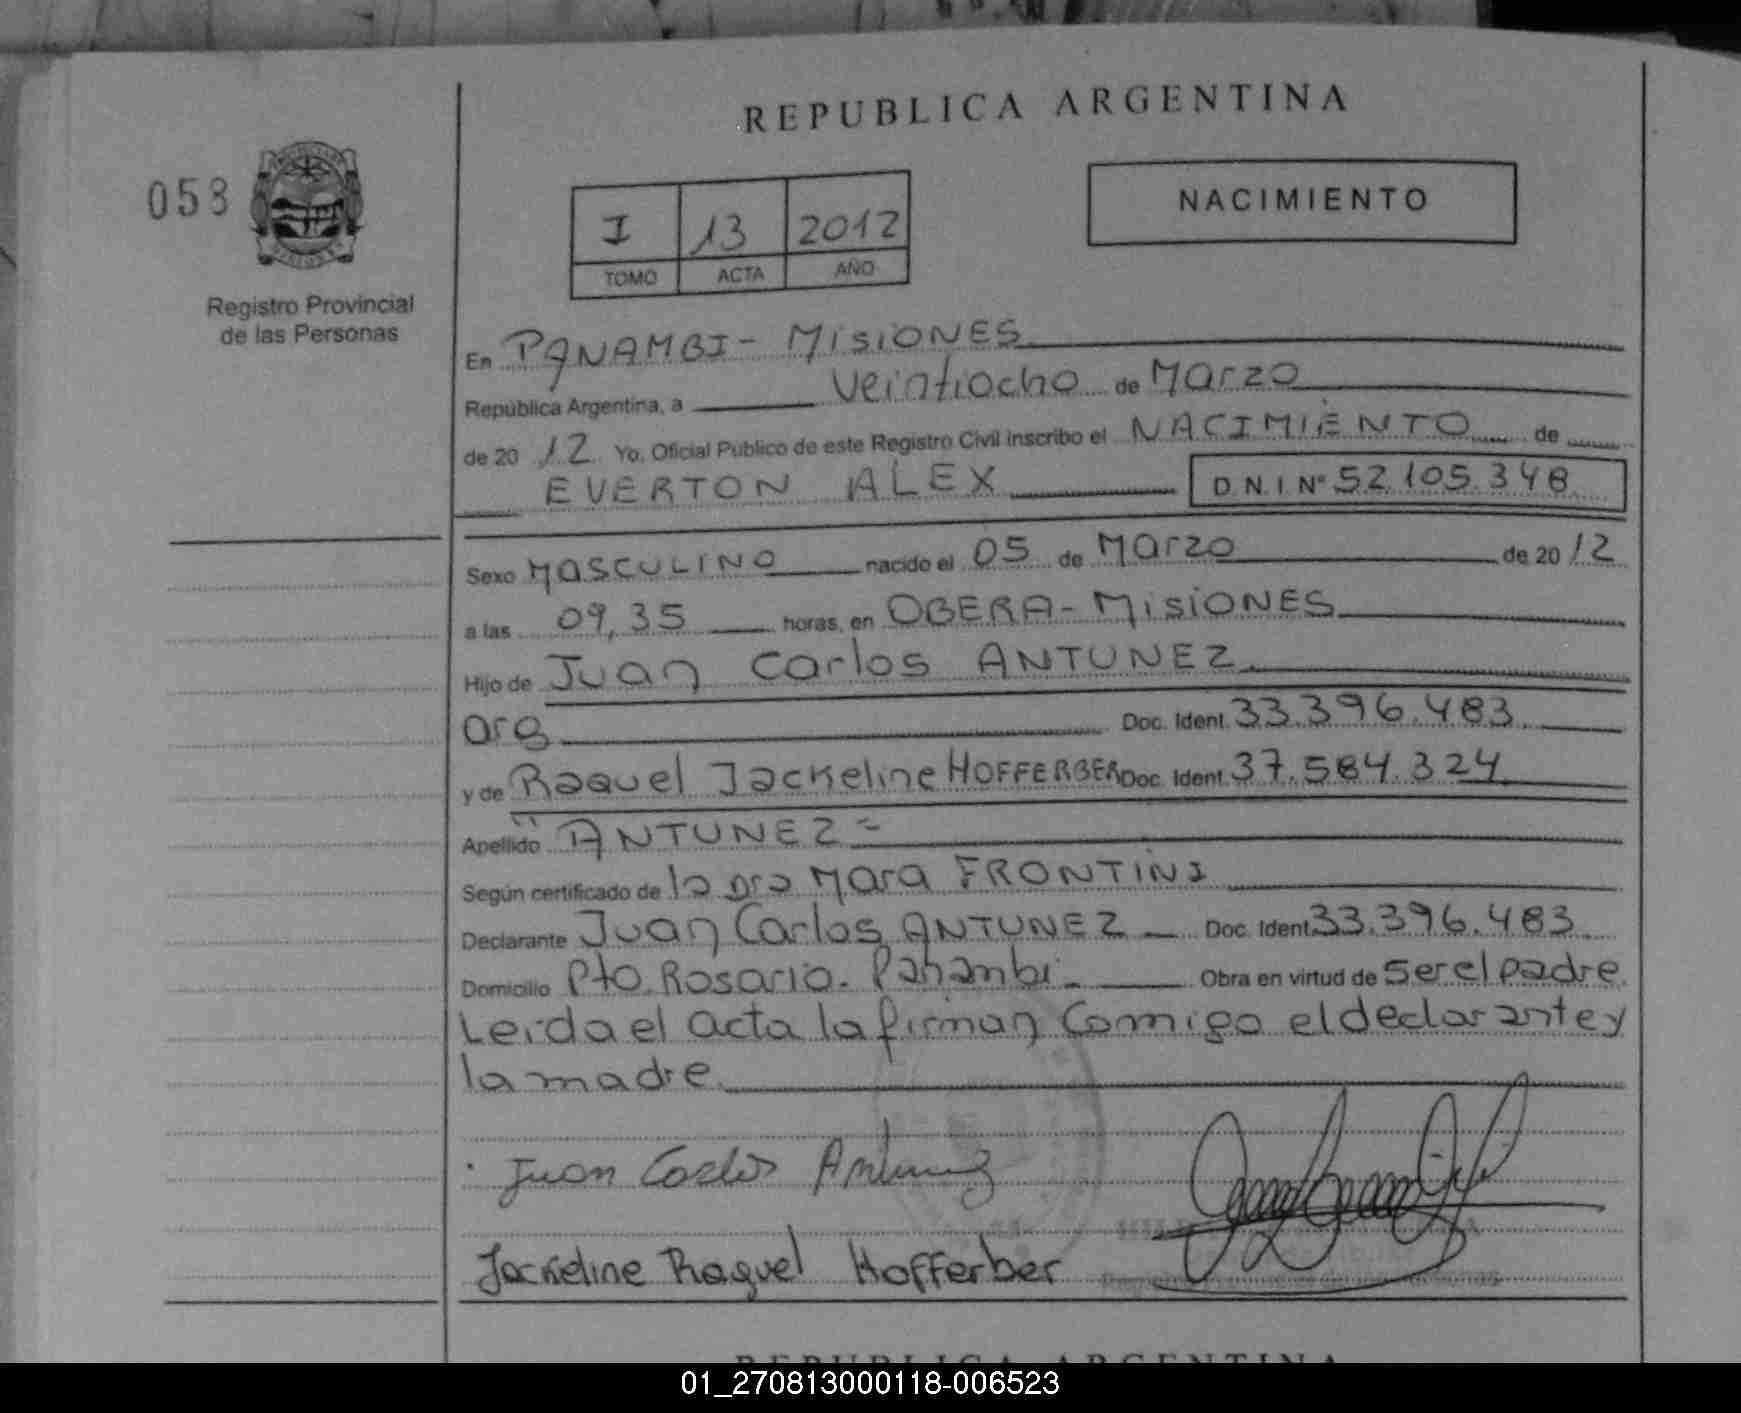 REPUBLICA ARGENTINA
058
NACIMIENTO
I 13 2012
TOMO ACTA AÑO
Registro Provincial
de las Personas
En PANAMBI - MISIONES
República Argentina, a veintiocho de Marzo
de 20 12 Yo, Oficial Publico de este Registro Civil inscribo el NACIMIENTO de
EVERTON ALEX D.N.I Nº 52.105.348
Sexo MASCULINO nacido el 05 de Marzo de 20 12
a las 09,35 horas, en OBERA - MISIONES
Hijo de Juan Carlos ANTUNEZ
arg Doc. Ident. 33.396.483
y de Raquel Jackeline HOFFERBER Doc. Ident. 37.584.324
Apellido "ANTUNEZ=
Según certificado de la Dra Mara FRONTINI
Declarante Juan Carlos ANTUNEZ Doc. Ident. 33.396.483
Domicilio Pto. Rosario. Panambi Obra en virtud de ser el padre.
Leida el acta la firman conmigo el declarante y
la madre
Juan Carlos Antunez
Jackeline Raquel Hofferber
REPUBLICA ARGENTINA
01_270813000118-006523